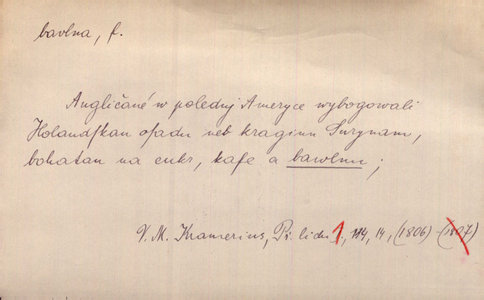 bavlna, f.
Angličané w polednj Ameryce wybogowali
Holandſkau oſadu neb kraginu Surynam,
bohatau na cukr, kafe a bawlnu;
V. M. Kramerius, Př. lidu 1., 114, 14, (1806) (1807)